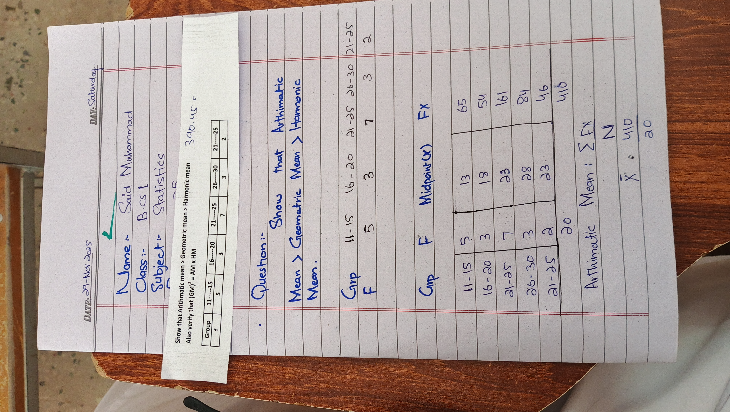 DATE: 29-Nov-2025 DAY: Saturday
Name:- Said Muhammad
Class:- B.CS 1
Subject:- Statistics
Show that Arithmatic mean > Geometric mean > Harmonic mean
Also verify that (GM)² = AM x HM 390.45 =
Group 11----15 16----20 21----25 21----30 21----25
F 5 3 7 3 2
Question:-
Show that Arthimatic
Mean > Geometric Mean > Harmonic
Mean.
Grp 11-15 16-20 21-25 26-30 21-25
F 5 3 7 3 2
Grp F Midpoint(x) FX
11-15 5 13 65
16-20 3 18 54
21-25 7 23 161
26-30 3 28 84
21-25 2 23 46
20 410
Arthimatic Mean: Σ FX
N
X̄ = 410
20